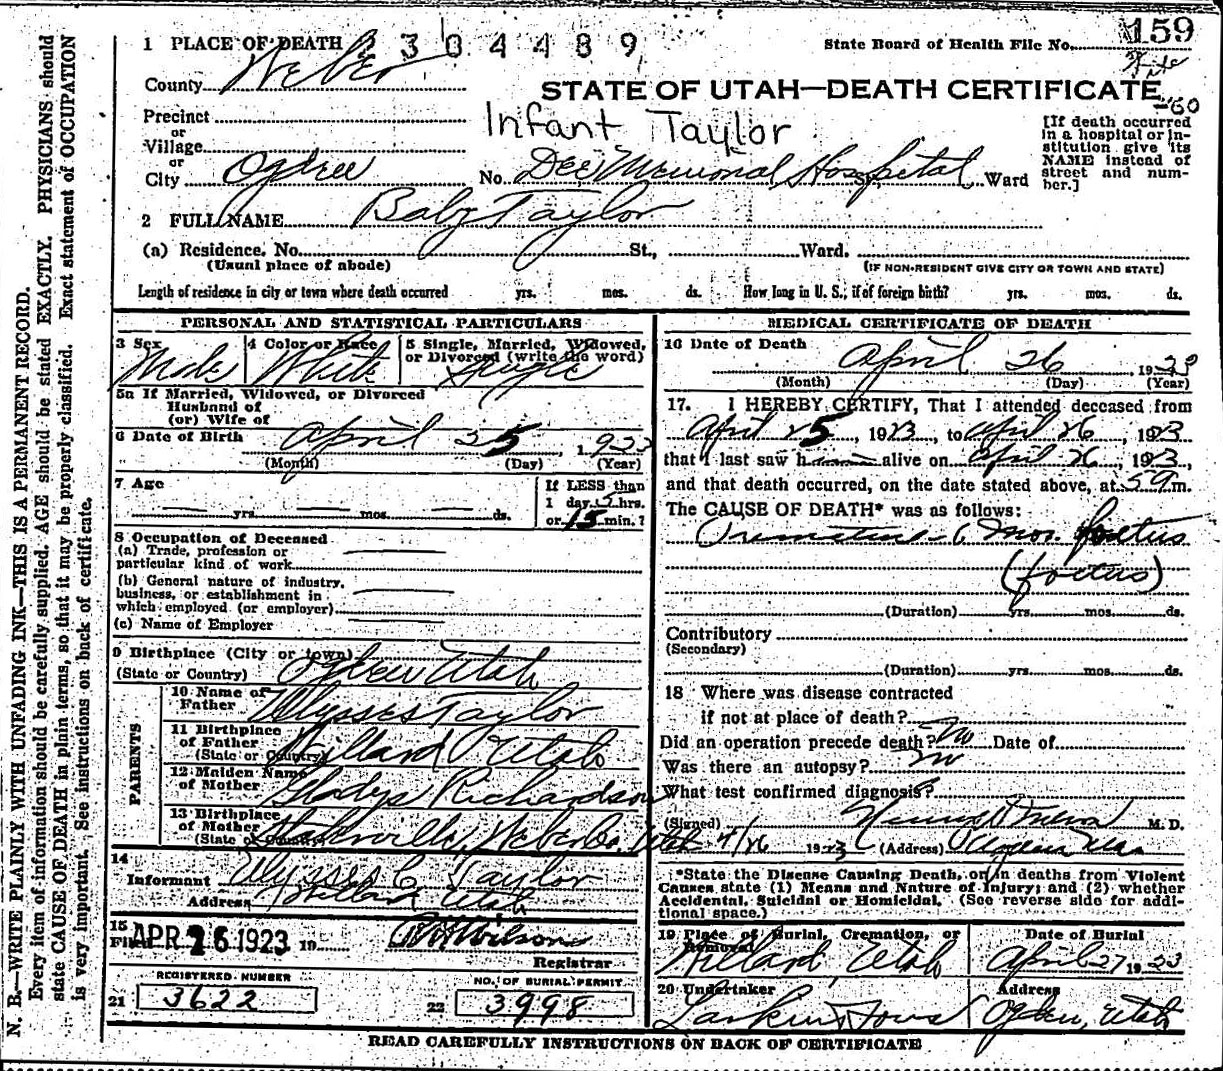 159
1 PLACE OF DEATH 2 3 0 4 4 8 9
State Board of Health File No.
County Weber
STATE OF UTAH—DEATH CERTIFICATE
-60
Precinct
or
Village
or
City Ogden
Infant Taylor
No. Dee Memorial Hospital St., Ward
[If death occurred
in a hospital or in-
stitution give its
NAME instead of
street and num-
ber.]
2 FULL NAME Baby Taylor
(a) Residence. No. St., Ward.
(Usual place of abode) (IF NON-RESIDENT GIVE CITY OR TOWN AND STATE)
Length of residence in city or town where death occurred yrs. mos. ds. How long in U. S., if of foreign birth? yrs. mos. ds.
PERSONAL AND STATISTICAL PARTICULARS
3 Sex 4 Color or Race 5 Single, Married, Widowed,
or Divorced (write the word)
Male White Single
5a If Married, Widowed, or Divorced
Husband of
(or) Wife of
6 Date of Birth April 25, 1923
(Month) (Day) (Year)
7 Age yrs. mos. ds.
If LESS than
1 day 5 hrs.
or 15 min.?
8 Occupation of Deceased
(a) Trade, profession or
particular kind of work
(b) General nature of industry,
business, or establishment in
which employed (or employer)
(c) Name of Employer
9 Birthplace (City or town)
(State or Country) Ogden Utah
PARENTS
10 Name of
Father Ulysses Taylor
11 Birthplace
of Father
(State or Country) Willard Utah
12 Maiden Name
of Mother Gladys Richardson
13 Birthplace
of Mother
(State or Country) Weber Co. Utah
14
Informant Ulysses C Taylor
Address Willard Utah
15
Filed APR 26 1923 19 Wilson
Registrar
REGISTERED NUMBER NO. OF BURIAL PERMIT
21 3622 22 3998
MEDICAL CERTIFICATE OF DEATH
16 Date of Death April 26, 1923
(Month) (Day) (Year)
17. I HEREBY CERTIFY, That I attended deceased from
April 25, 1923, to April 26, 1923
that I last saw h alive on April 26, 1923,
and that death occurred, on the date stated above, at 5 a m.
The CAUSE OF DEATH* was as follows:
Premature 6 mos. foetus
(foetus)
(Duration) yrs. mos. ds.
Contributory
(Secondary)
(Duration) yrs. mos. ds.
18 Where was disease contracted
if not at place of death?
Did an operation precede death? No Date of
Was there an autopsy? no
What test confirmed diagnosis?
(Signed) M. D.
4/26 1923 (Address) Ogden Utah
*State the Disease Causing Death, or in deaths from Violent
Causes state (1) Means and Nature of Injury; and (2) whether
Accidental, Suicidal or Homicidal. (See reverse side for addi-
tional space.)
19 Place of Burial, Cremation, or
Removal Date of Burial
Willard, Utah April 27 1923
20 Undertaker Address
Larkin & Sons Ogden, Utah
READ CAREFULLY INSTRUCTIONS ON BACK OF CERTIFICATE
N. B.—WRITE PLAINLY WITH UNFADING INK—THIS IS A PERMANENT RECORD.
Every item of information should be carefully supplied. AGE should be stated EXACTLY. PHYSICIANS should
state CAUSE OF DEATH in plain terms, so that it may be properly classified. Exact statement of OCCUPATION
is very important. See instructions on back of certificate.